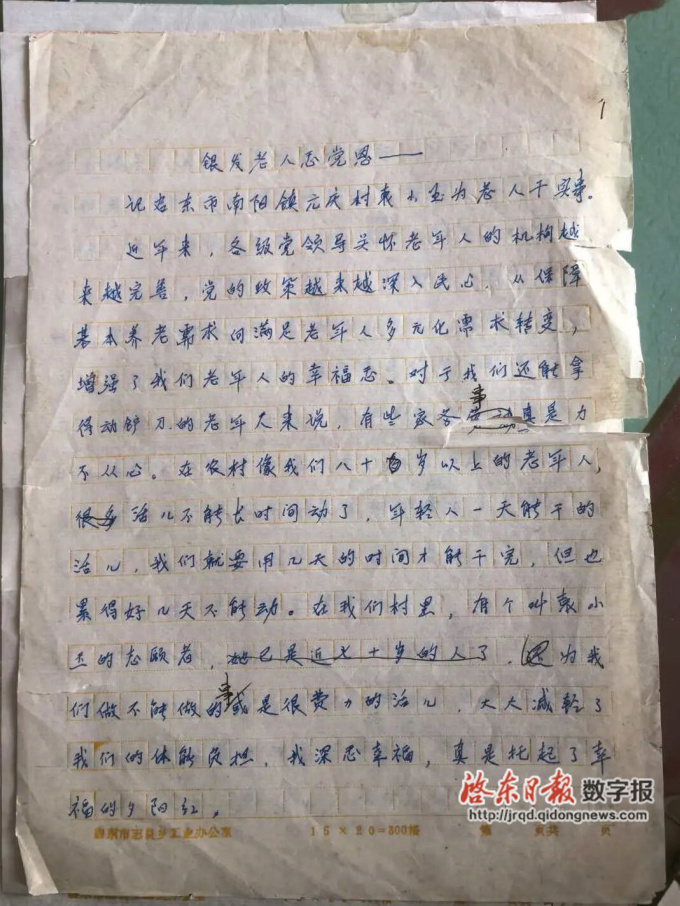 1
银发老人感党恩——
记启东市南阳镇元庆村袁小玉为老人干实事。
近年来，各级党领导关怀老年人的机构越
来越完善，党的政策越来越深入民心，从保障
基本养老需求向满足老年人多元化需求转变，
增强了我们老年人的幸福感。对于我们还能拿
得动铲刀的老年人来说，有些家务事真是力
不从心。在农村像我们八十岁以上的老年人，
很多活儿不能长时间动了，年轻人一天能干的
活儿，我们就要用几天的时间才能干完，但也
累得好几天不能动。在我们村里，有个叫袁小
玉的志愿者，她已是近七十岁的人了，因为我
们做不能做的事或是很费力的活儿，大大减轻了
我们的体能负担，我深感幸福，真是托起了幸
福的夕阳红。
启东市志良乡工业办公室 15×20=300格 第 页共 页
启东日报 数字报
http://jrqd.qidongnews.com